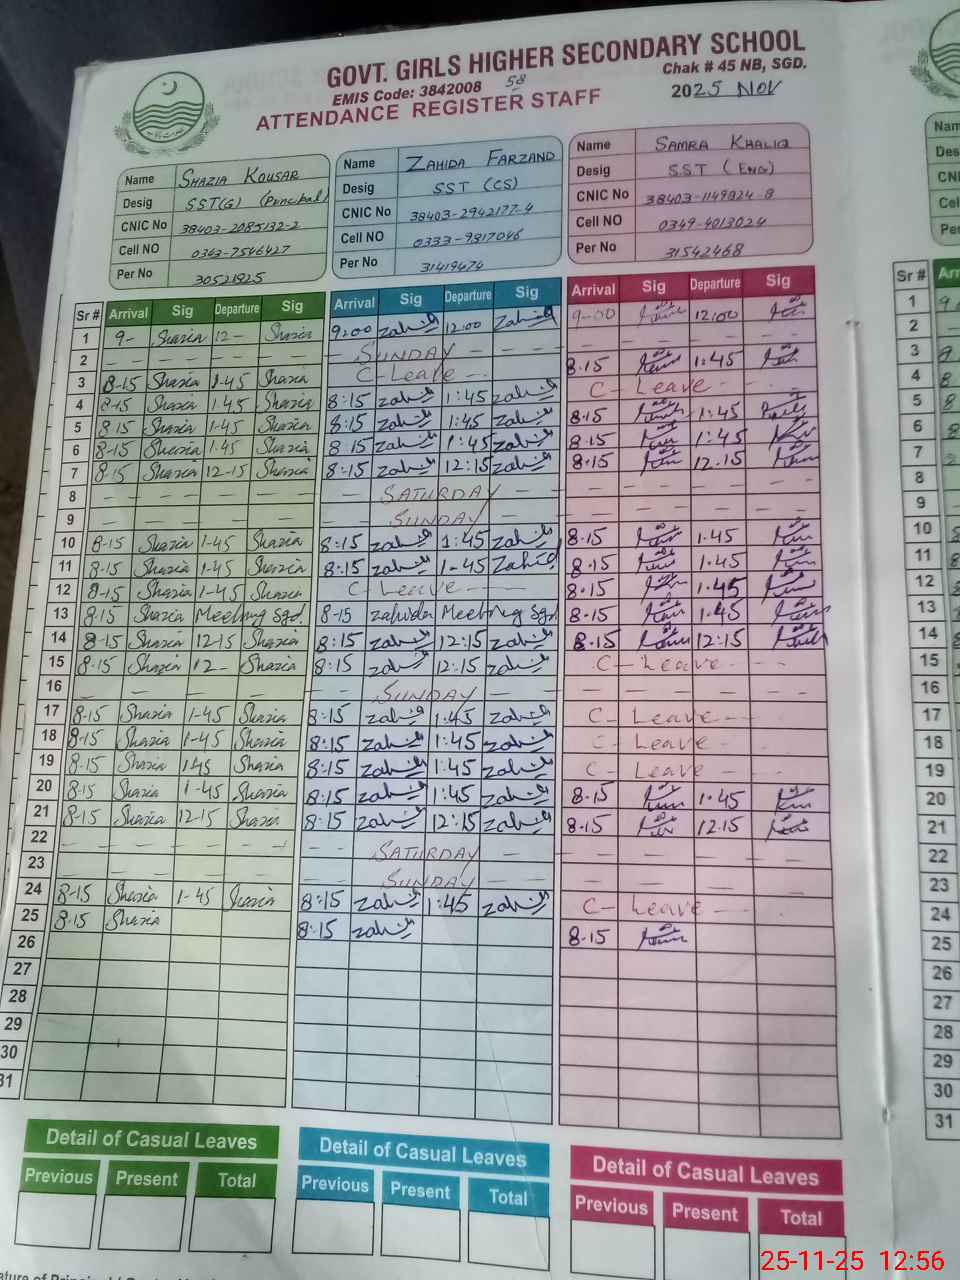 GOVT. GIRLS HIGHER SECONDARY SCHOOL
Chak # 45 NB, SGD.
EMIS Code: 3842008 58
2025 NOV
ATTENDANCE REGISTER STAFF
Name SHAZIA KOUSAR
Desig SST(G) (Principal)
CNIC No 38403-2085132-2
Cell NO 0343-7546427
Per No 30521925
Name ZAHIDA FARZAND
Desig SST (CS)
CNIC No 38403-2942177-4
Cell NO 0333-9817046
Per No 31419474
Name SAMRA KHALIQ
Desig SST (ENG)
CNIC No 38403-1149824-8
Cell NO 0349-4013024
Per No 31542468
Sr # Arrival Sig Departure Sig Arrival Sig Departure Sig Arrival Sig Departure Sig Sr #
1 9- Shazia 12- Shazia 9:00 12:00 9-00 12:00 1
2 — — — — — SUNDAY — — 2
3 8-15 Shazia 1-45 Shazia C-Leave 8.15 1.45 3
4 8-15 Shazia 1-45 Shazia 8:15 1:45 C-Leave 4
5 8-15 Shazia 1-45 Shazia 8:15 1:45 8.15 1.45 5
6 8-15 Shazia 1-45 Shazia 8:15 1:45 8.15 1:45 6
7 8-15 Shazia 12-15 Shazia 8:15 12:15 8:15 12.15 7
8 — — — — — SATURDAY — — 8
9 — — — — — SUNDAY — — 9
10 8-15 Shazia 1-45 Shazia 8:15 1:45 8.15 1.45 10
11 8-15 Shazia 1-45 Shazia 8:15 1-45 8.15 1.45 11
12 8-15 Shazia 1-45 Shazia C-Leave 8.15 1.45 12
13 8-15 Shazia Meeting Sgd. 8-15 zahida Meeting Sgd. 8.15 1.45 13
14 8-15 Shazia 12-15 Shazia 8:15 12:15 8.15 12:15 14
15 8-15 Shazia 12- Shazia 8:15 12:15 C-Leave 15
16 — — — — — SUNDAY — — 16
17 8-15 Shazia 1-45 Shazia 8:15 1:45 C-Leave 17
18 8-15 Shazia 1-45 Shazia 8:15 1:45 C-Leave 18
19 8-15 Shazia 1-45 Shazia 8:15 1:45 C-Leave 19
20 8-15 Shazia 1-45 Shazia 8:15 1:45 8.15 1.45 20
21 8-15 Shazia 12-15 Shazia 8:15 12:15 8.15 12.15 21
22 — — — — — SATURDAY — — 22
23 — — — — — SUNDAY — — 23
24 8-15 Shazia 1-45 Shazia 8:15 1:45 C-Leave 24
25 8-15 Shazia 8:15 8.15 25
26 26
27 27
28 28
29 29
30 30
31 31
Detail of Casual Leaves
Previous Present Total
Detail of Casual Leaves
Previous Present Total
Detail of Casual Leaves
Previous Present Total
25-11-25 12:56